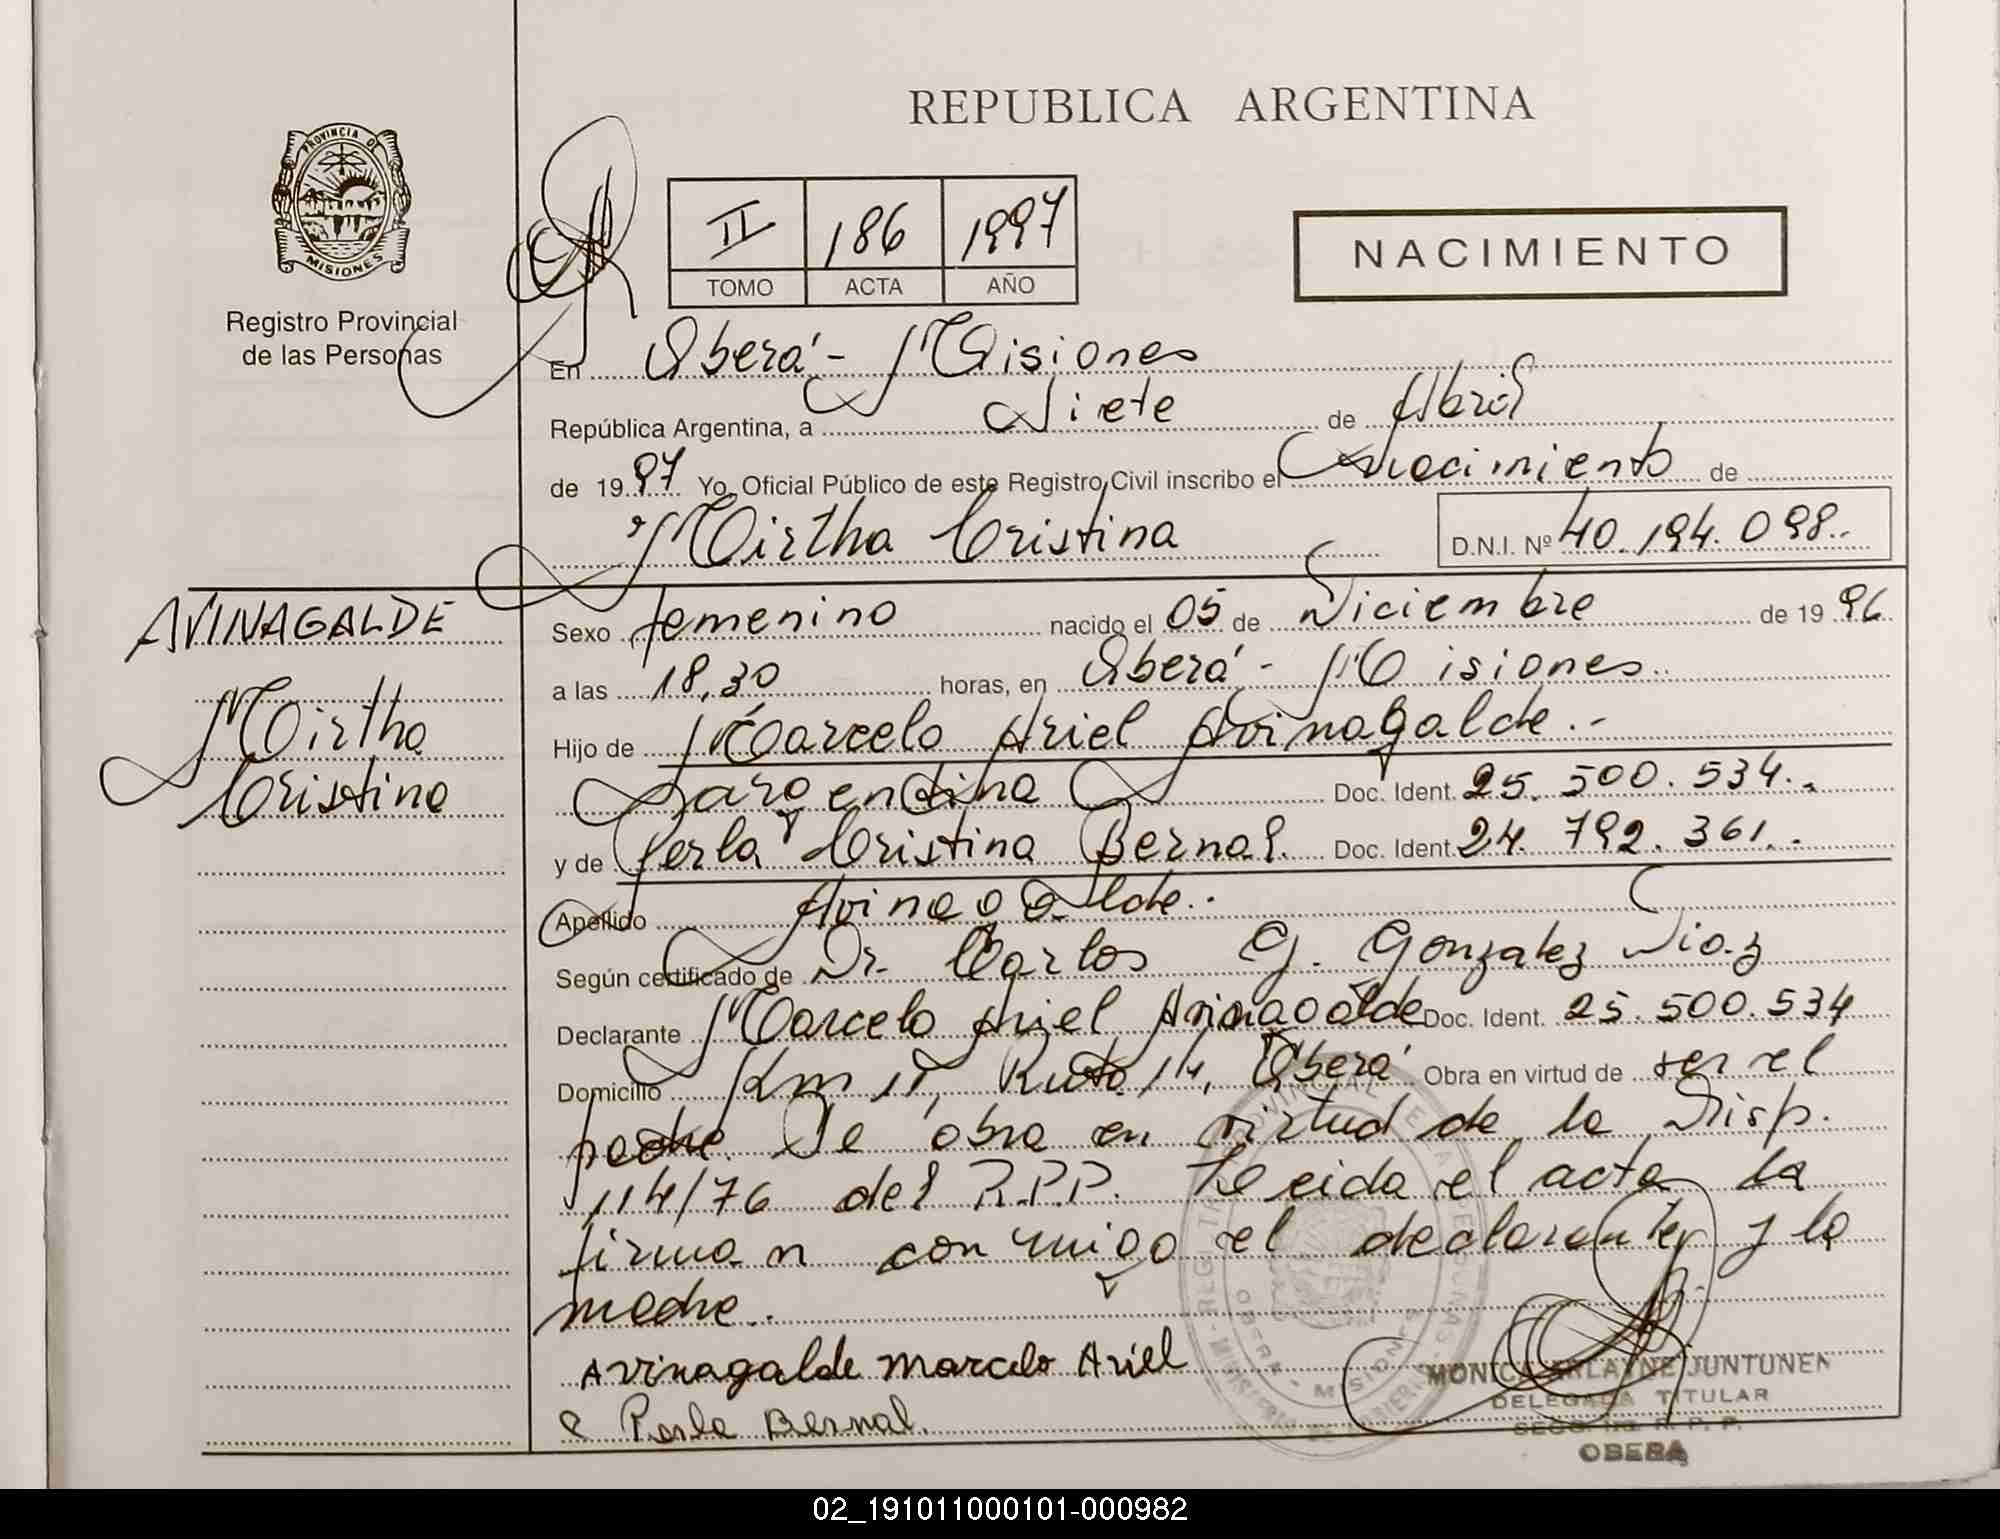 REPUBLICA ARGENTINA
PROVINCIA DE
MISIONES
Registro Provincial
de las Personas
II 186 1997
TOMO ACTA AÑO
NACIMIENTO
En Oberá - Misiones
República Argentina, a Siete de Abril
de 1997 Yo, Oficial Público de este Registro Civil inscribo el Nacimiento de
Mirtha Cristina D.N.I. Nº 40.194.098.-
AVINAGALDE
Mirtha
Cristina
Sexo femenino nacido el 05 de Diciembre de 1996
a las 18,30 horas, en Oberá - Misiones.
Hijo de Marcelo Ariel Avinagalde.-
argentina Doc. Ident. 25.500.534.-
y de Perla Cristina Bernal. Doc. Ident. 24.792.361.-
Apellido Avinagalde.-
Según certificado de Dr. Carlos G. Gonzalez Diaz
Declarante Marcelo Ariel Avinagalde Doc. Ident. 25.500.534
Domicilio Km 11, Ruta 14, Oberá Obra en virtud de ser el
padre. Se obra en virtud de la Disp.
114/76 del R.P.P. Leida el acta la
firman conmigo el declarante y la
madre.
Avinagalde Marcelo Ariel
Perla Bernal.
MONICA ARLAYNE JUNTUNEN
DELEGADA TITULAR
R. P. P.
OBERA
02_191011000101-000982